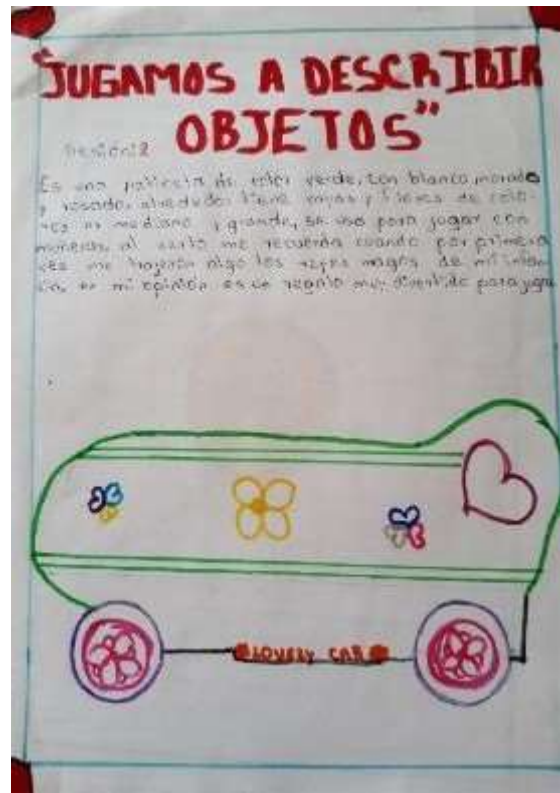 "JUGAMOS A DESCRIBIR
OBJETOS"
Es una de color verde, con blanco, morado
y rosado, alrededor tiene rayas y flores de colo-
res es mediano y grande, se usa para jugar con
muñecas, al me recuerda cuando por primera
vez me trajeron algo los reyes magos de mi infan-
cia, en mi opinión es un regalo muy divertido para jugar
LOVELY CAR